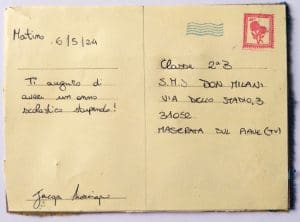 Martino 6/5/24
Ti auguro di
avere un anno
scolastico stupendo!
Classe 2ªB
S.M.S DON MILANI
VIA DELLO STADIO, 3
31052
MASERATA SUL PIAVE (TV)